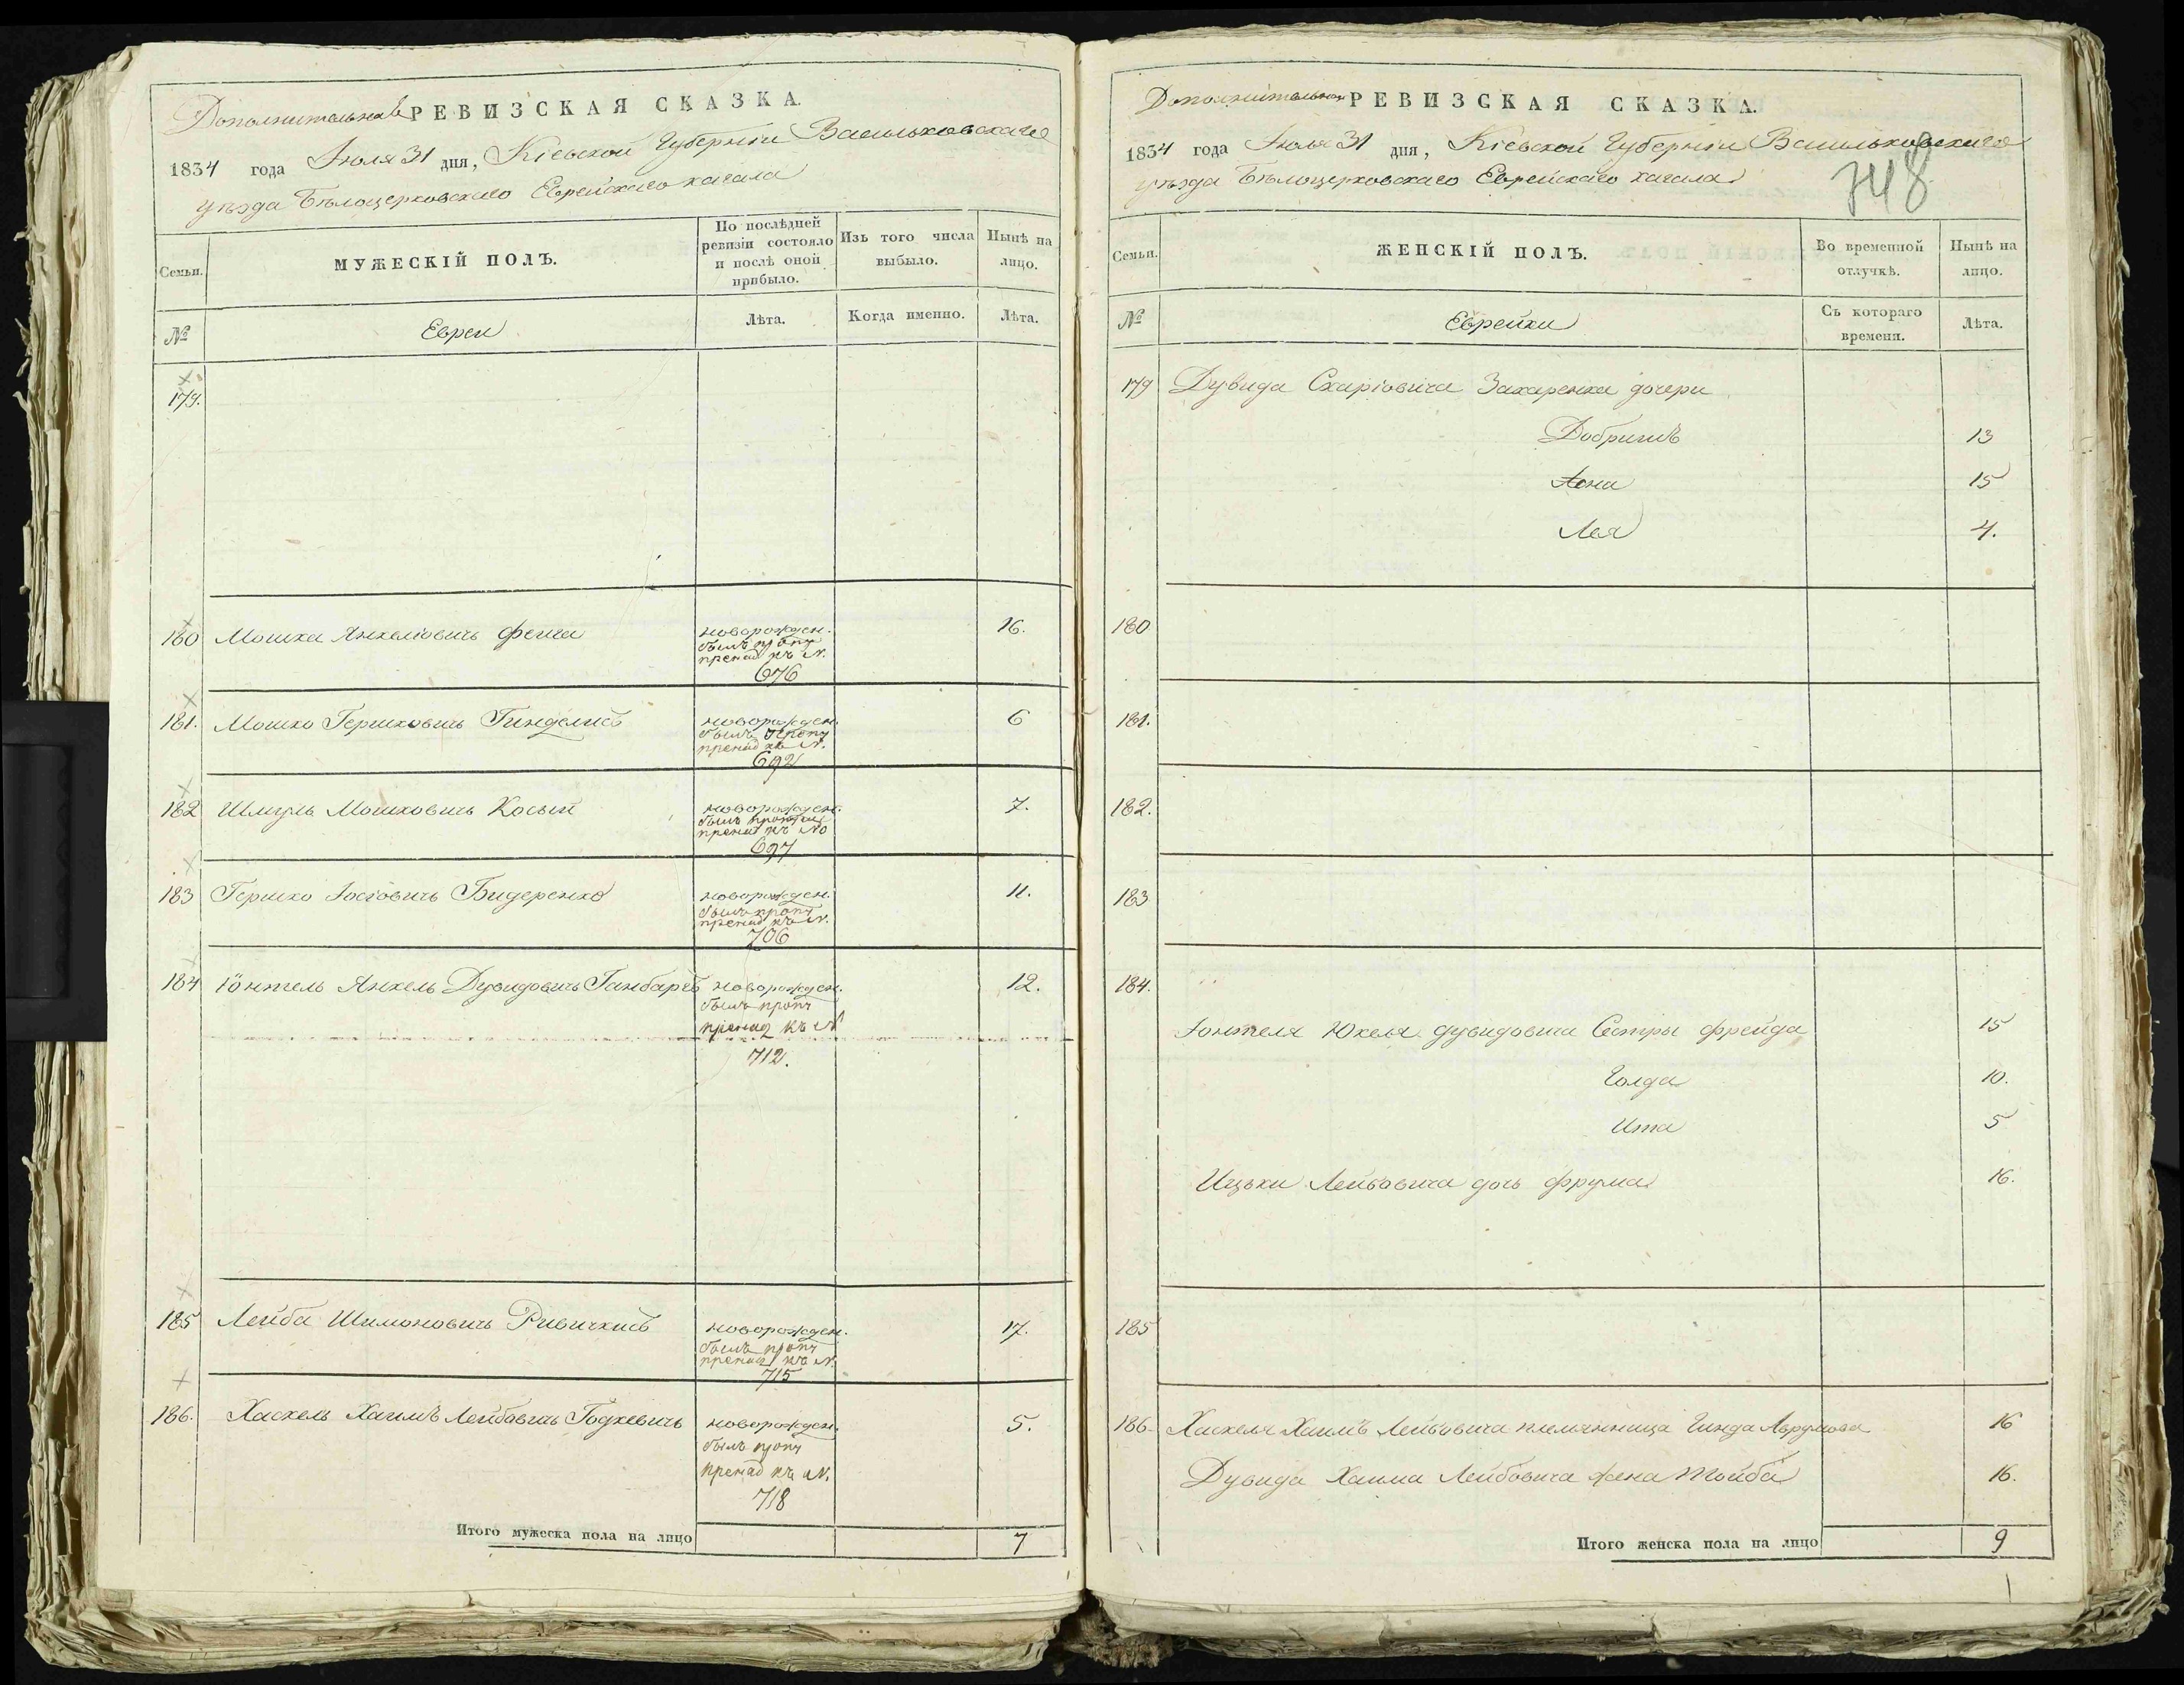 Дополнительная РЕВИЗСКАЯ СКАЗКА.
1834 года Іюля 31 дня, Кіевской Губерніи Васильковскаго
уѣзда Бѣлоцерковскаго Еврейскаго кагала
Семьи.
МУЖЕСКІЙ ПОЛЪ.
По послѣдней ревизіи состояло и послѣ оной прибыло.
Изъ того числа выбыло.
Нынѣ на лицо.
№
Евреи
Лѣта.
Когда именно.
Лѣта.
179.
180 Мошка Янкеліовичь Фенча новорожден. 16.
былъ проп
пренад къ N.
676
181. Мошко Гершковичь Гинделисъ новорожден. 6
былъ проп
пренад къ N.
692
182 Шмуль Мошковичь Косый новорожден. 7.
былъ проп
пренад къ No
697
183 Гершко Іосіовичь Бидеренко новорожден. 11.
былъ проп
пренад къ N.
706
184 Іонтель Янкель Дувидовичь Ганбаръ новорожден. 12.
былъ проп
пренад къ N
712.
185 Лейба Шимоновичь Ривичкисъ новорожден. 17.
былъ проп
пренад къ N.
715
186. Хаскель Хаимъ Лейбовичь Годкевичь новорожден. 5.
былъ проп
пренад къ N.
718
Итого мужеска пола на лицо 7
Дополнительная РЕВИЗСКАЯ СКАЗКА.
1834 года Іюля 31 дня, Кіевской Губерніи Васильковскаго
уѣзда Бѣлоцерковскаго Еврейскаго кагала
748
Семьи.
ЖЕНСКІЙ ПОЛЪ.
Во временной отлучкѣ.
Нынѣ на лицо.
№
Еврейки
Съ котораго времени.
Лѣта.
179 Дувида Схаріовича Захаренка дочери
Добришъ 13
15
Лея 4.
180
181.
182.
183
184.
Іонтеля Юкеля Дувидовича Сестры Фрейда 15
Голда 10.
Ита 5
Ицьки Лейбовича дочь Фрума 16.
185
186. Хаскеля Хаимъ Лейбовича племянница Гинда Аврумова 16
Дувида Хаима Лейбовича жена Тойба 16.
Итого женска пола на лицо 9